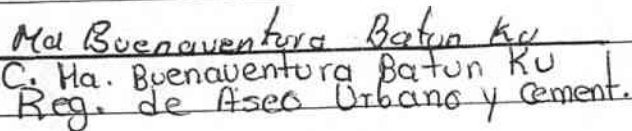 Ma Buenaventura Batun Ku
C. Ma. Buenaventura Batun Ku
Reg. de Aseo Urbano y Cement.